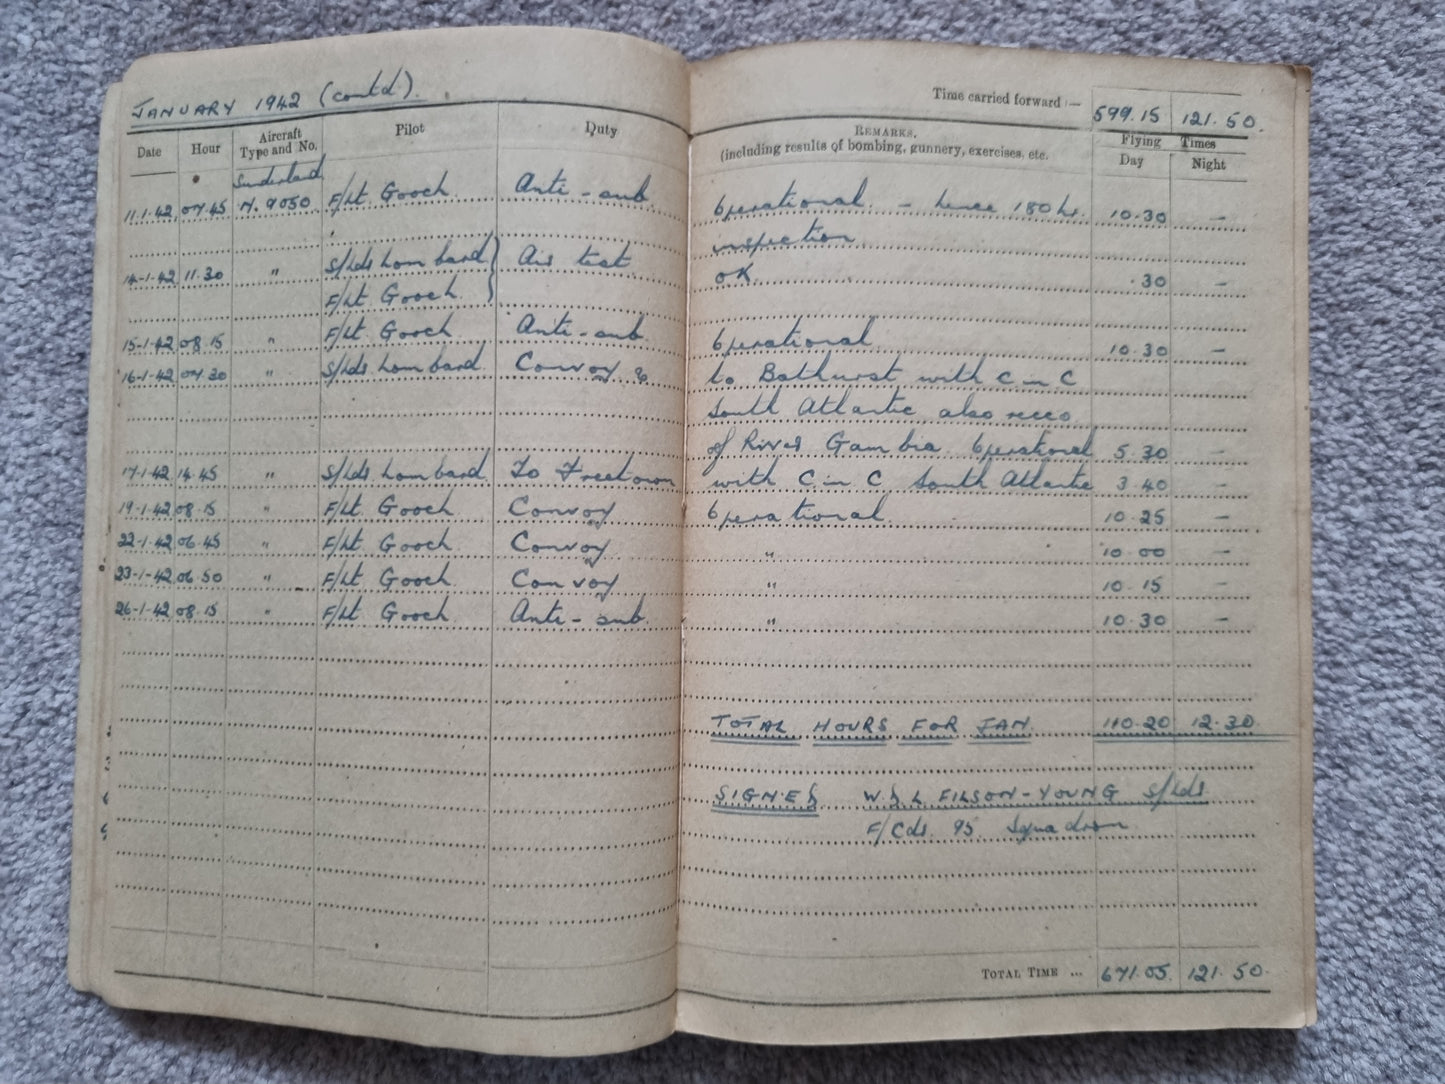 JANUARY 1942 (contd).
Date Hour Aircraft Type and No. Pilot Duty
Sunderland
11.1.42 07.45 N. 9050 F/Lt Gooch Anti-sub
14-1-42 11.30 " S/Ldr Lombard } Air test
F/Lt Gooch
15-1-42 08.15 " F/Lt Gooch Anti-sub
16-1-42 07.30 " S/Ldr Lombard Convoy &
17-1-42 14.45 " S/Ldr Lombard To Freetown
19-1-42 08.15 " F/Lt Gooch Convoy
22-1-42 06.45 " F/Lt Gooch Convoy
23-1-42 06.50 " F/Lt Gooch Convoy
26-1-42 08.15 " F/Lt Gooch Anti-sub
Time carried forward :— 599.15 121.50.
REMARKS. Flying Times
(including results of bombing, gunnery, exercises, etc. Day Night
Operational. - hence 180 hr. 10.30 -
inspection
OK .30 -
Operational 10.30 -
to Bathurst with C in C
South Atlantic also recco
of River Gambia. Operational 5.30 -
with C in C South Atlantic 3.40 -
Operational 10.25 -
" 10.00 -
" 10.15 -
" 10.30 -
TOTAL HOURS FOR JAN. 110.20 12.30
SIGNED W.D.L FILSON-YOUNG S/Ldr
F/Cdr. 95 Squadron
TOTAL TIME ... 671.05. 121.50.